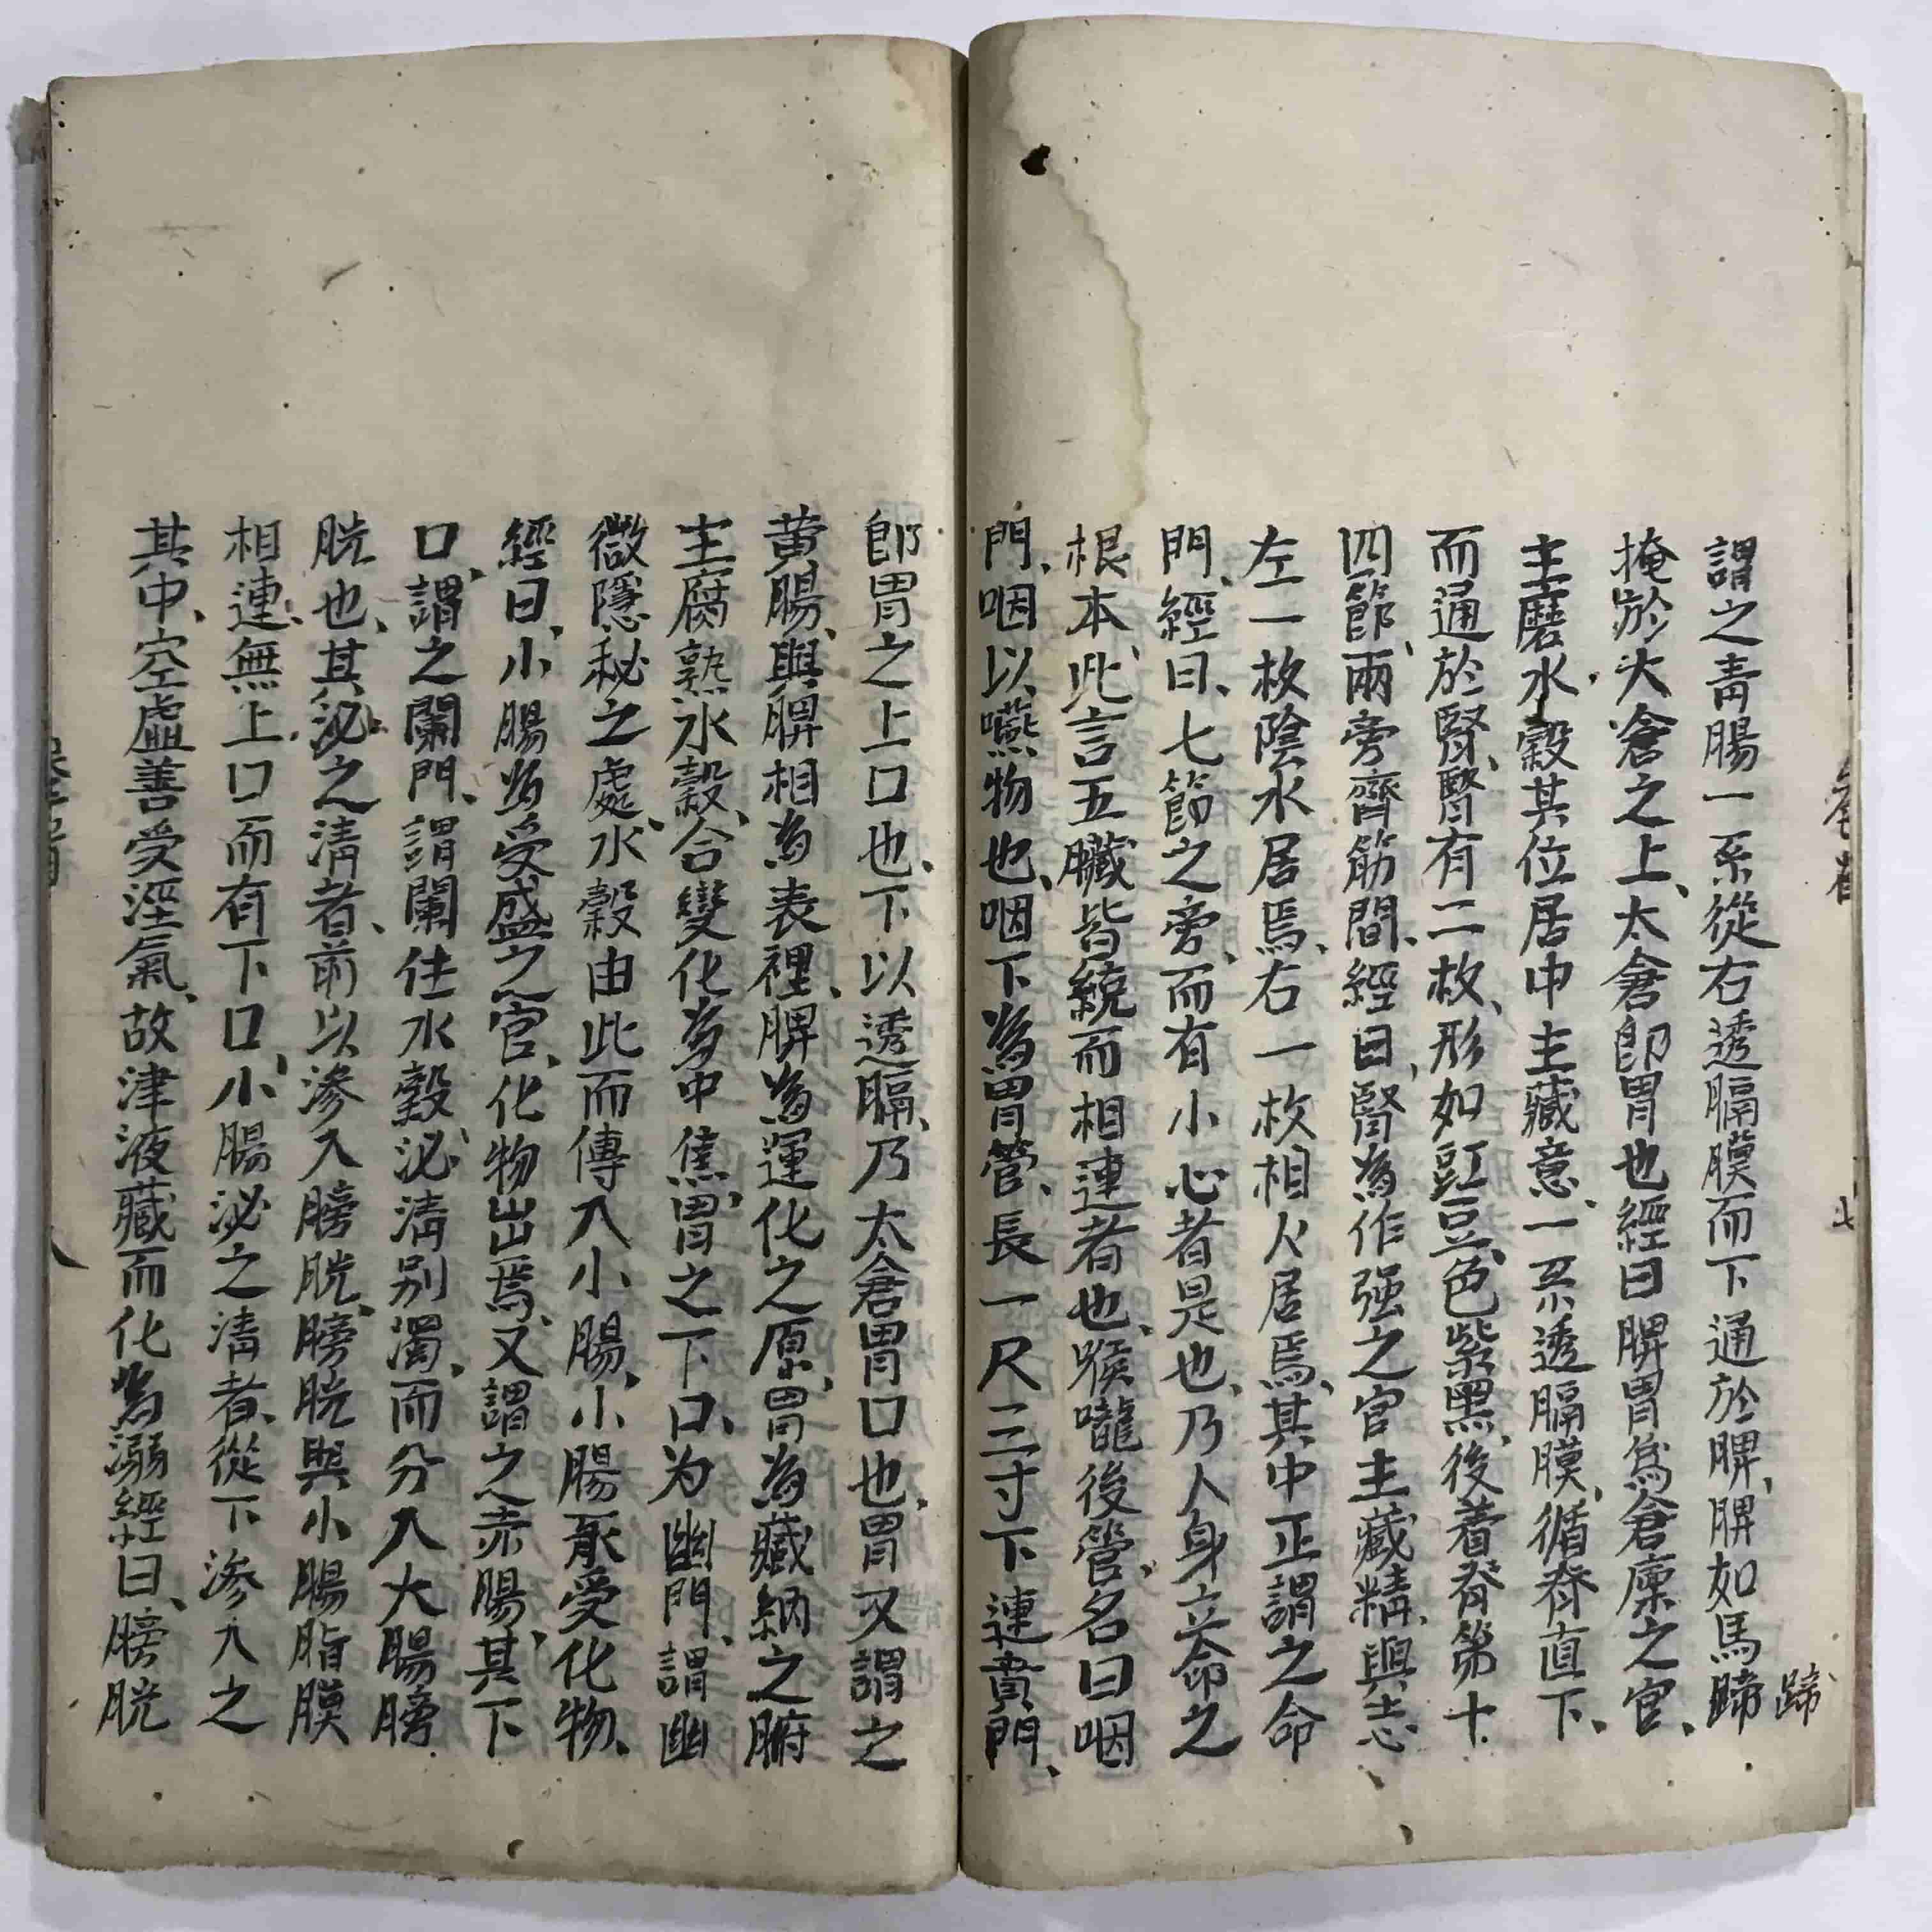 蹄
謂之青腸一系從右透膈膜而下通於脾、脾如馬蹄
掩於大倉之上、太倉卽胃也經曰脾胃爲倉廩之官、
主磨水穀其位居中主藏意、一系透膈膜、循脊直下、
而通於腎、腎有二枚、形如豇豆、色紫黑、後着脊第十
四節、兩旁齊筋間、經曰、腎為作强之官主藏精、與志
左一枚陰水居焉、右一枚相火居焉、其中正謂之命
門、經曰、七節之旁、而有小心者是也、乃人身立命之
根本、此言五臟皆繞而相連者也、喉嚨後管、名曰咽
門、咽以嚥物也、咽下為胃管、長一尺三寸下連賁門、
卽胃之上口也、下以透膈、乃太倉胃口也、胃又謂之
黄腸、與脾相為表裡、脾為運化之原、胃為藏納之腑
主腐熟水穀、合變化為中焦、胃之下口、为幽門、謂幽
微隱秘之處、水穀由此而傳入小腸、小腸承受化物、
經曰、小腸為受盛之官、化物出焉、又謂之赤腸、其下
口、謂之闌門、謂闌住水穀、泌清别濁、而分入大腸膀
胱也、其泌之清者、前以渗入膀胱、膀胱與小腸脂膜
相連、無上口而有下口、小腸泌之清者、從下渗入之
其中、空虛善受溼氣、故津液藏而化為溺經曰、膀胱
七
八